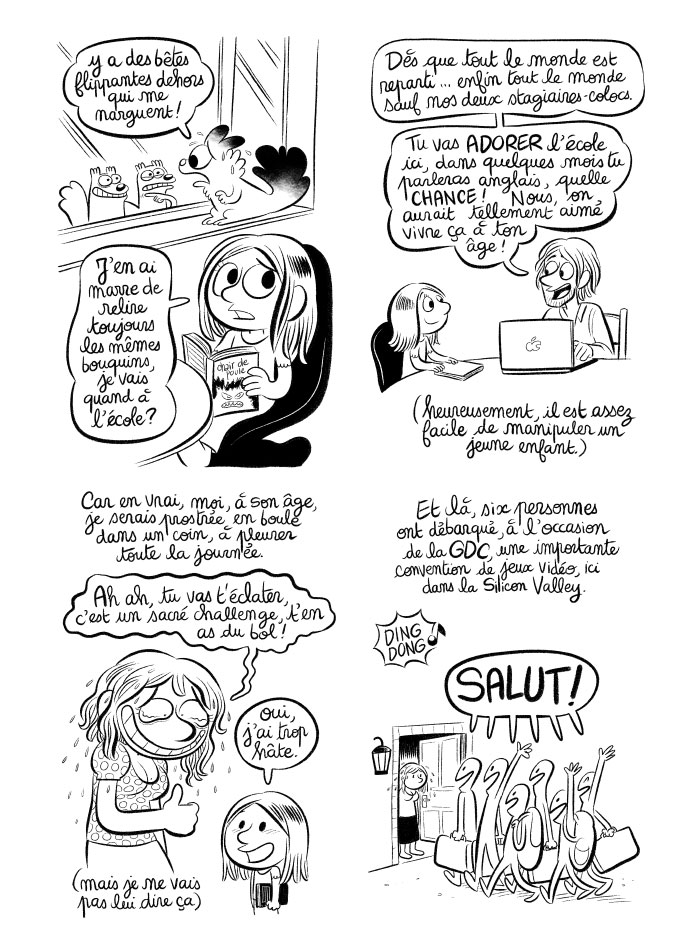 y a des bêtes
flippantes dehors
qui me
narguent !
J'en ai
marre de
relire
toujours
les mêmes
bouquins,
je vais
quand à
l'école ?
chair de
poule
Dès que tout le monde est
reparti... enfin tout le monde
sauf nos deux stagiaires-colocs.
Tu vas ADORER l'école
ici, dans quelques mois tu
parleras anglais, quelle
CHANCE ! Nous, on
aurait tellement aimé
vivre ça à ton
âge !
(heureusement, il est assez
facile de manipuler un
jeune enfant.)
Car en vrai, moi, à son âge,
je serais prostrée en boule
dans un coin, à pleurer
toute la journée.
Ah ah, tu vas t'éclater,
c'est un sacré challenge, t'en
as du bol !
oui,
j'ai trop
hâte.
(mais je ne vais
pas lui dire ça)
Et là, six personnes
ont débarqué, à l'occasion
de la GDC, une importante
convention de jeux vidéo, ici
dans la Silicon Valley.
DING
DONG
SALUT !